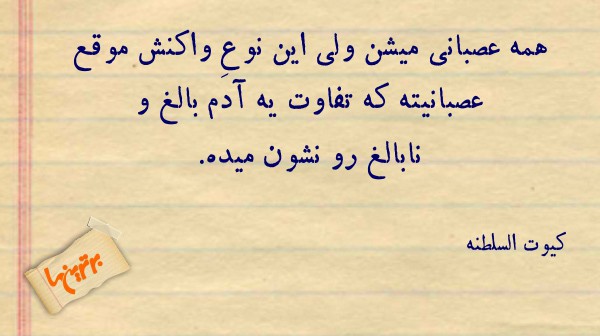 همه عصبانی میشن ولی این نوعِ واکنش موقع
عصبانیته که تفاوت یه آدم بالغ و
نابالغ رو نشون میده.
کیوت السلطنه
برترینها